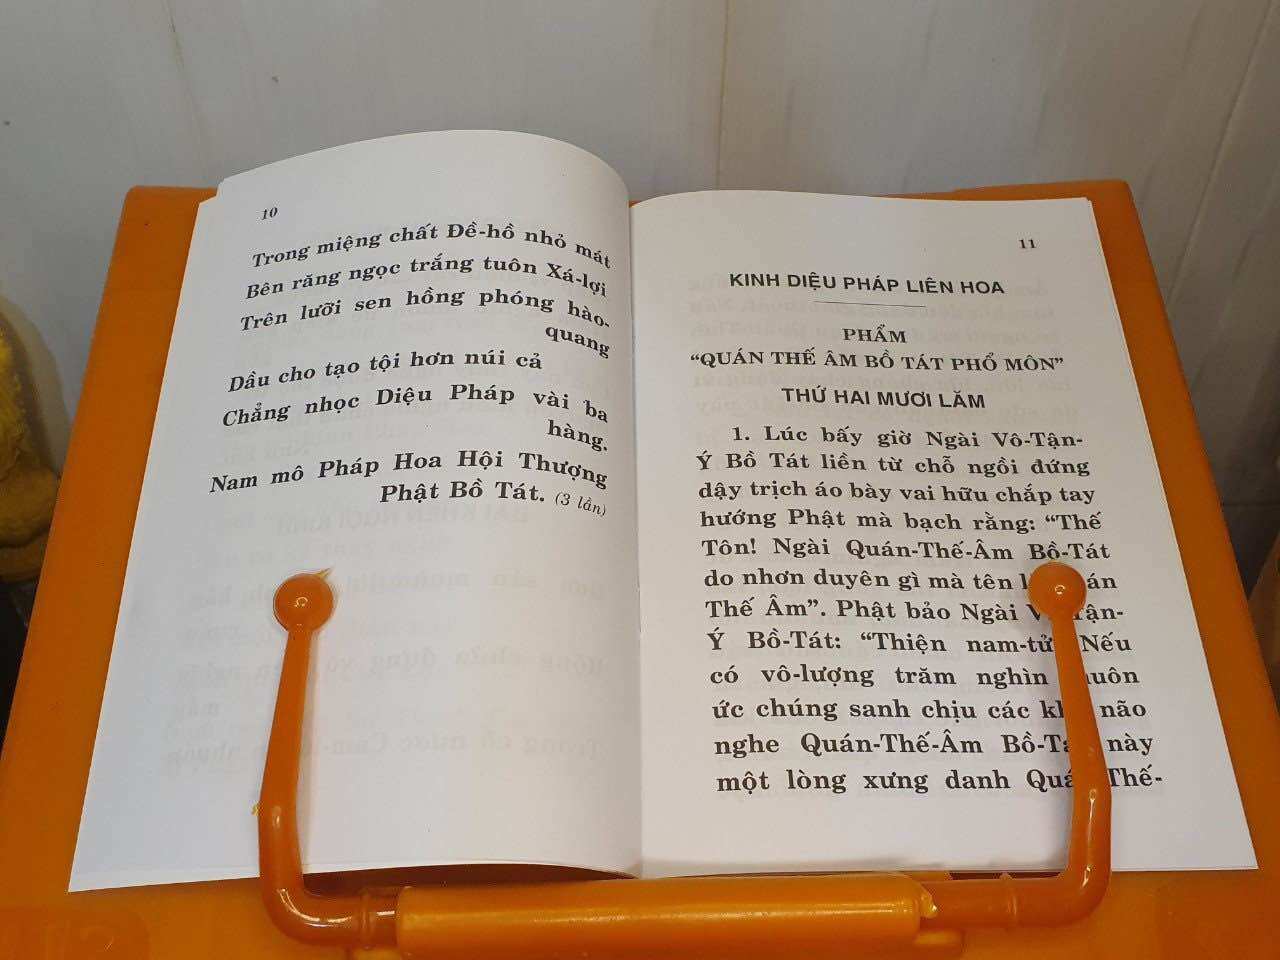 10
Trong miệng chất Đề-hồ nhỏ mát
Bên răng ngọc trắng tuôn Xá-lợi
Trên lưỡi sen hồng phóng hào-
quang
Dầu cho tạo tội hơn núi cả
Chẳng nhọc Diệu Pháp vài ba
hàng.
Nam mô Pháp Hoa Hội Thượng
Phật Bồ Tát. (3 lần)
11
KINH DIỆU PHÁP LIÊN HOA
PHẨM
“QUÁN THẾ ÂM BỒ TÁT PHỔ MÔN”
THỨ HAI MƯƠI LĂM
1. Lúc bấy giờ Ngài Vô-Tận-
Ý Bồ Tát liền từ chỗ ngồi đứng
dậy trịch áo bày vai hữu chắp tay
hướng Phật mà bạch rằng: “Thế
Tôn! Ngài Quán-Thế-Âm Bồ-Tát
do nhơn duyên gì mà tên
Thế Âm”. Phật bảo Ngài
Ý Bồ-Tát: “Thiện nam-tử Nếu
có vô-lượng trăm nghìn
ức chúng sanh chịu các não
nghe Quán-Thế-Âm này
một lòng xưng danh